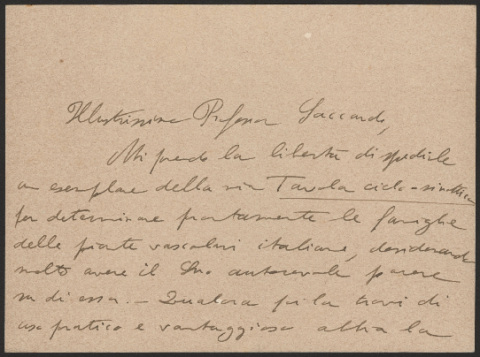 Illustrissimo Professor Saccardo,
Mi prendo la libertà di spedirle
un esemplare della mia Tavola ciclo-sinottica
per determinare prontamente le famiglie
delle piante vascolari italiane, desiderando
molto avere il Suo autorevole parere
su di essa. – Qualora più la trovi di
uso pratico e vantaggioso abbia la